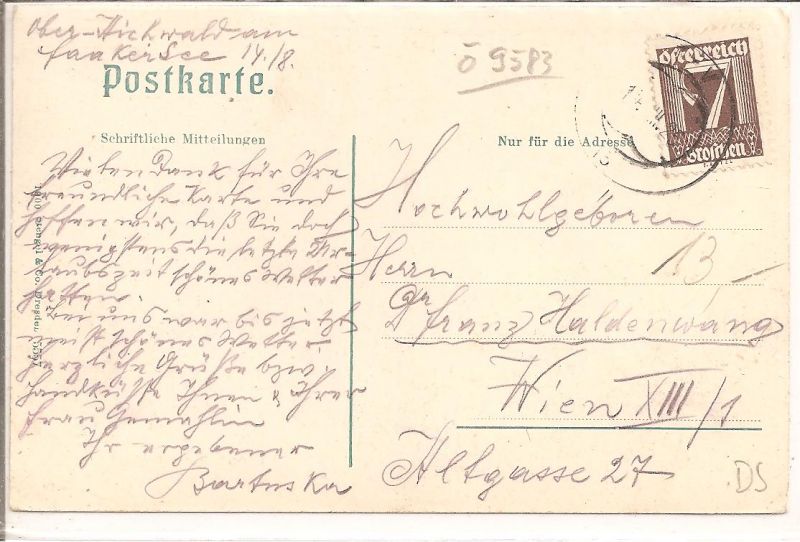 Ober-Aichwald am
Faakersee 14./8.
Postkarte.
ö 9583
Österreich
7
Groschen
Schriftliche Mitteilungen
Nur für die Adresse
Vielen Dank für Ihre
freundliche Karte und
hoffen wir, daß Sie doch
wenigstens die letzte Ur-
laubszeit schönes Wetter
hatten.
Bei uns war bis jetzt
meist schönes Wetter
herzliche Grüße bzw.
Handküsse Ihnen & Ihrer
Frau Gemahlin
Ihr ergebener
Bartuska
Stengel & Co., Dresden
Hochwohlgeboren
Herrn
13
Dr Franz Haldenwang
Wien XIII/1
Altgasse 27
DS